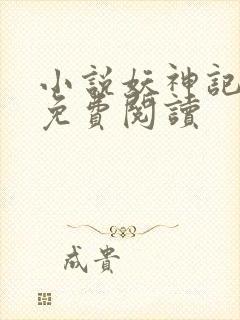 小說妖神記
免費閱讀
成貴